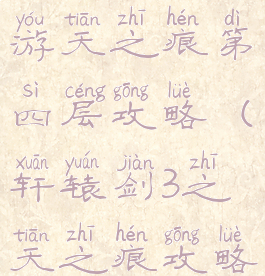 yóu tiān zhī hén dì
游天之痕第
sì céng gōng lüè
四层攻略（
xuān yuán jiàn zhī
轩辕剑3之
tiān zhī hén gōng lüè
天之痕攻略